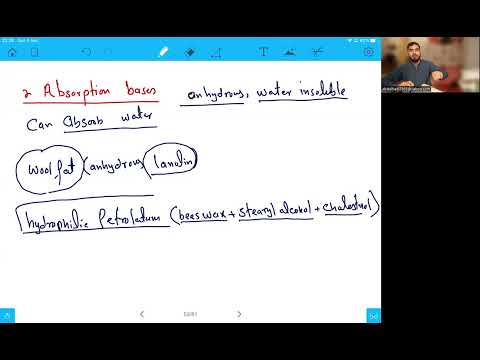 2 Absorption bases anhydrous, water insoluble
Can absorb water
Wool fat (anhydrous lanolin)
hydrophilic Petrolatum (bees wax + stearyl alcohol + cholestrol)
53/81